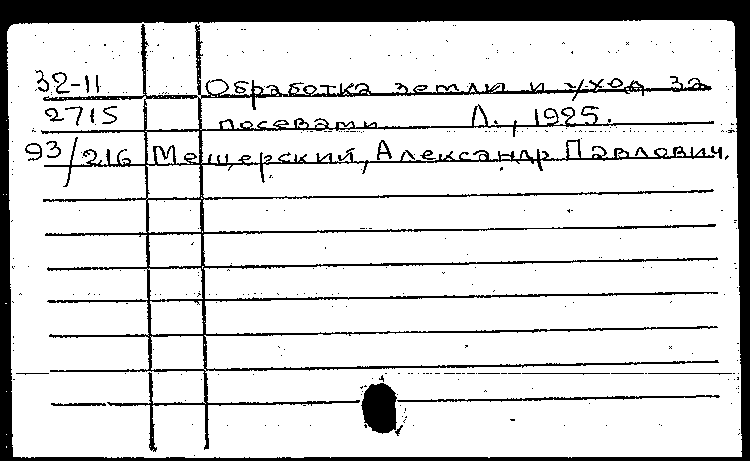 32-11 Обработка земли и уход за
2715 посевами Л., 1925.
93/216 Мещерский, Александр Павлович.